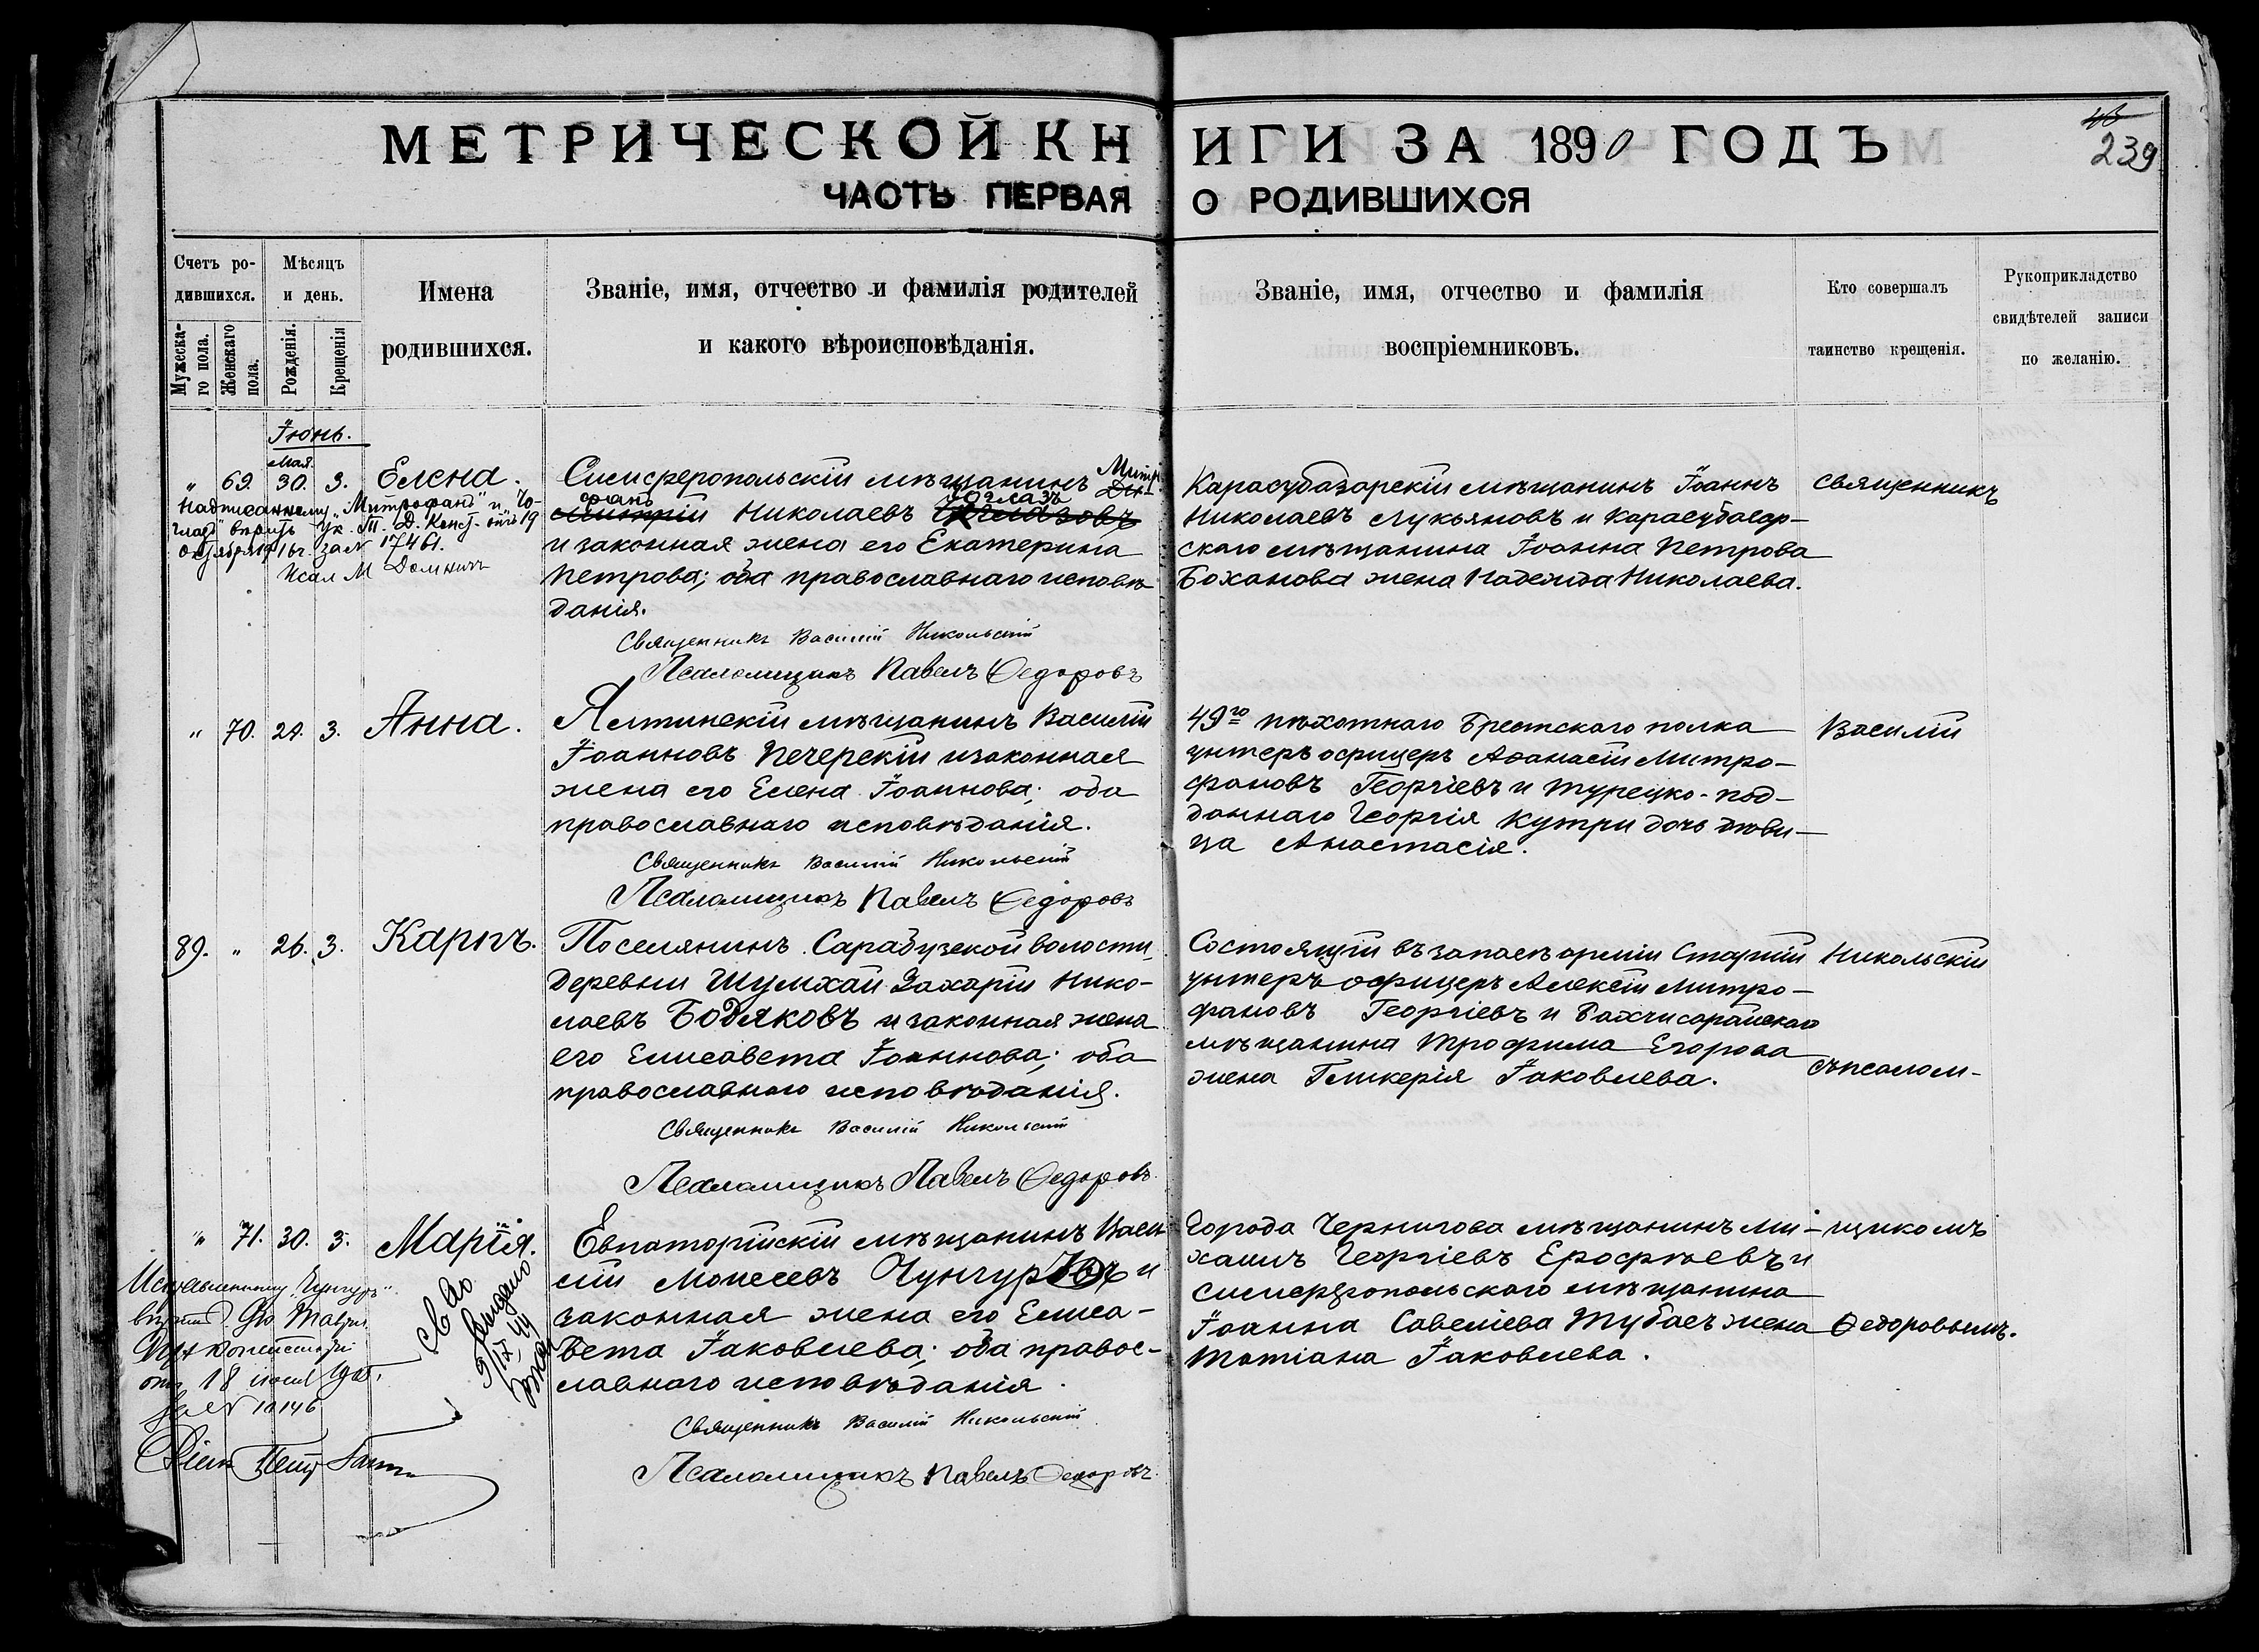 МЕТРИЧЕСКОЙ КНИГИ ЗА 1890 ГОДЪ
239
ЧАСТЬ ПЕРВАЯ О РОДИВШИХСЯ
Счетъ ро-
дившихся.
Мужеска-
го пола.
Женскаго
пола.
Мѣсяцъ
и день.
Рожденія.
Крещенія
Имена
родившихся.
Званіе, имя, отчество и фамилія родителей
и какого вѣроисповѣданія.
Званіе, имя, отчество и фамилія
воспріемниковъ.
Кто совершалъ
таинство крещенія.
Рукоприкладство
свидѣтелей записи
по желанію.
Іюнь.
Мая.
" 69. 30. 3. Елена.
Надписанному „Митрофанъ" и „Чо-
глазъ" вѣрить Ук. Т. Д. Конст. отъ 19
октября 1916 г. за № 17461.
Симферопольскій мѣщанинъ Митро
фанъ Николаевъ Чоглазъ
и законная жена его Екатерина
Петрова; оба православнаго исповѣ
данія.
Священникъ Василій Никольскій
Псаломщикъ Павелъ Ѳедоровъ
Карасубазарскій мѣщанинъ Іоаннъ
Николаевъ Лукьяновъ и Карасубазар-
скаго мѣщанина Іоанна Петрова
Боханова жена Надежда Николаева.
Священникъ
" 70. 3. Анна.
Ялтинскій мѣщанинъ Василій
Іоанновъ Печерскій и законная
жена его Елена Іоаннова; оба
православнаго исповѣданія.
Священникъ Василій Никольскій
Псаломщикъ Павелъ Ѳедоровъ
49го пѣхотнаго Брестскаго полка
унтеръ офицеръ Аѳанасій Митро-
фановъ Георгіевъ и турецко-под-
даннаго Георгія Кутри дочь дѣви-
ца Анастасія.
Василій
89. " 26. 3. Карпъ.
Поселянинъ Сарабузской волости,
деревни Шумхай Захарій Нико-
лаевъ Бодяковъ и законная жена
его Елисавета Іоаннова; оба
православнаго исповѣданія.
Священникъ Василій Никольскій
Псаломщикъ Павелъ Ѳедоровъ
Состоящій въ запасѣ арміи Старшій
унтеръ офицеръ Алексій Митро-
фановъ Георгіевъ и Бахчисарайскаго
мѣщанина Трофима Егорова
жена Гликерія Іаковлева.
Никольскій
съ псалом-
" 71. 30. 3. Марія.
от 18 1905,
за № 10146
Св-во
Выдано
Евпаторійскій мѣщанинъ Васи-
лій Моисеевъ Чунгур и
законная жена его Елиса-
вета Іаковлева; оба правос-
лавнаго исповѣданія.
Священникъ Василій Никольскій
Псаломщикъ Павелъ Ѳедоровъ
Города Чернигова мѣщанинъ Ми-
хаилъ Георгіевъ Ерофѣевъ и
Симферопольскаго мѣщанина
Іоанна Савеліева Тубаех жена
Татіана Іаковлева.
щикомъ
Ѳедоровымъ.